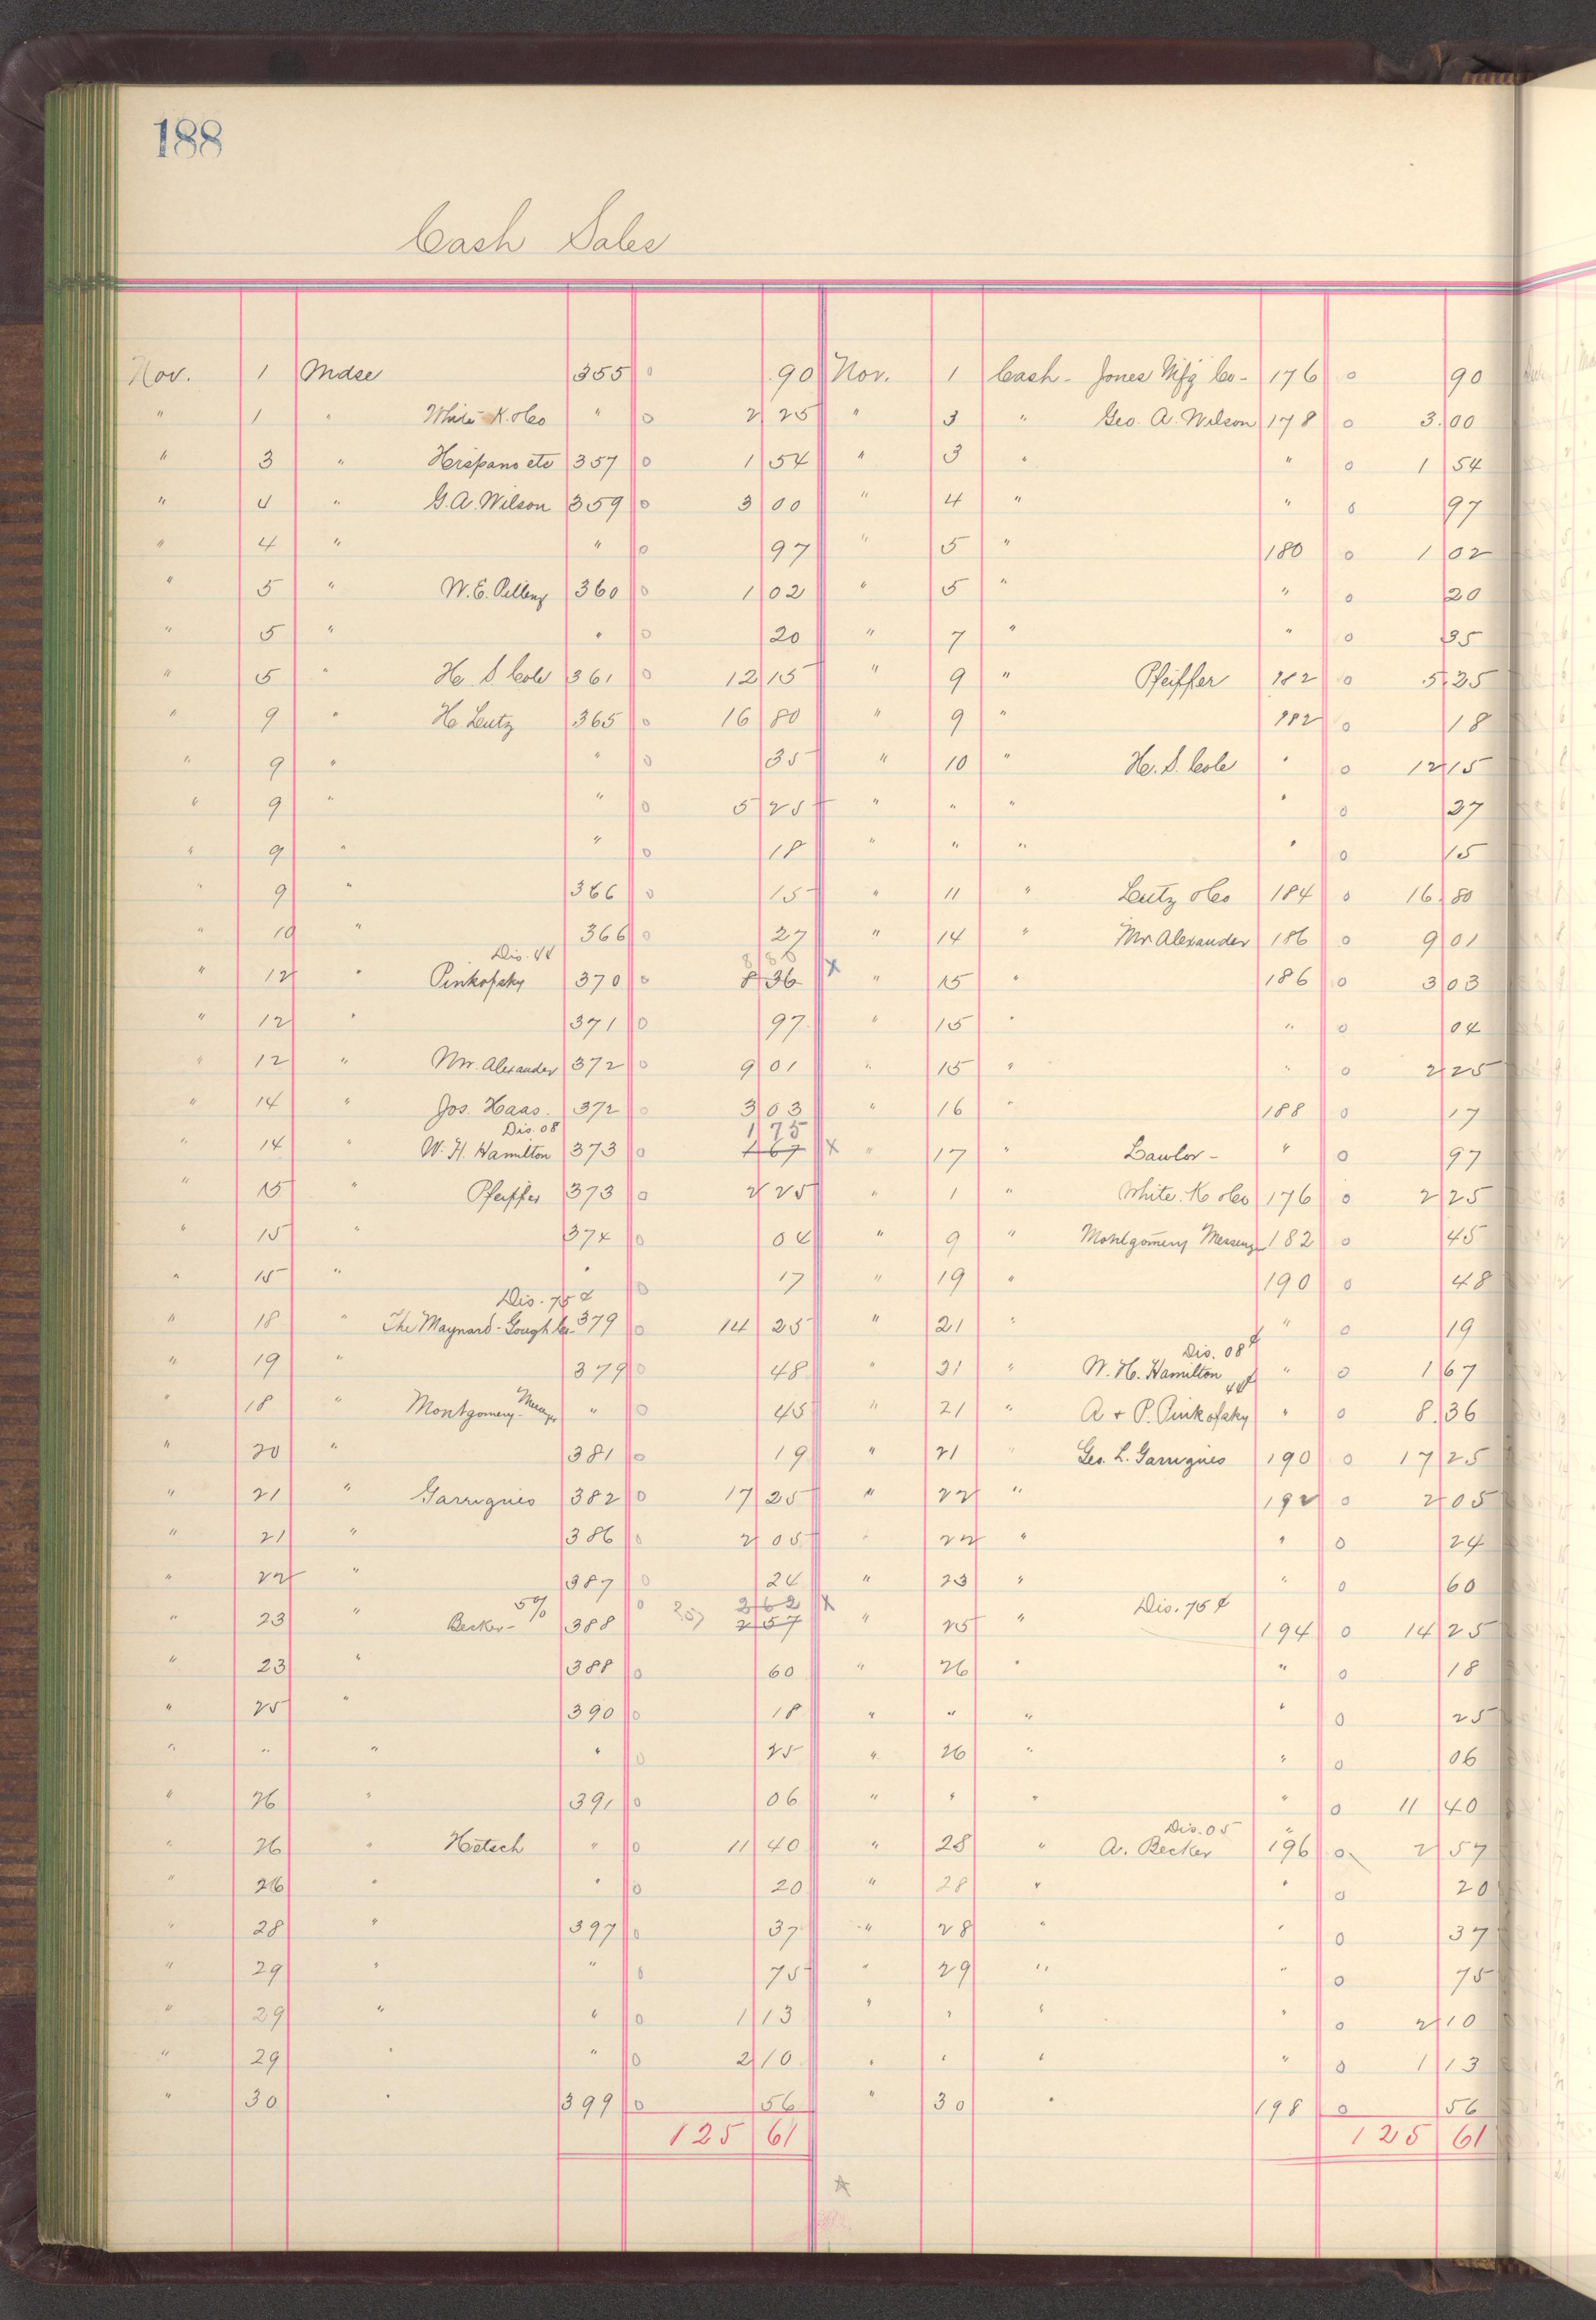 188
Cash Sales
Nov. 1 Mdse 355 0 90 Nov. 1 Cash - Jones Mfg Co - 176 0 90
" 1 " White K. & Co " 0 2 25 " 3 " Geo. A. Wilson 178 0 3.00
" 3 " Hispano etc 357 0 1 54 " 3 " " 0 1 54
" 4 " G. A. Wilson 359 0 3 00 " 4 " " 0 97
" 4 " " 0 97 " 5 " 180 0 1 02
" 5 " W. E. 360 0 1 02 " 5 " " 0 20
" 5 " " 0 20 " 7 " " 0 35
" 5 " H. S. Cole 361 0 12 15 " 9 " Pfeiffer 182 0 5.25
" 9 " H Leutz 365 0 16 80 " 9 " 182 0 18
" 9 " " 0 35 " 10 " H. S. Cole " 0 12 15
" 9 " " 0 5 25 " " " " 0 27
" 9 " " 0 18 " " " " 0 15
" 9 " 366 0 15 " 11 " Leutz & Co 184 0 16 80
" 10 " 366 0 27 " 14 " Mr Alexander 186 0 9 01
Dis. 44 8 80
" 12 " Pinkofsky 370 0 8 36 x " 15 " 186 0 3 03
" 12 " 371 0 97 " 15 " " 0 04
" 12 " Mr. Alexander 372 0 9 01 " 15 " " 0 2 25
" 14 " Jos. Haas. 372 0 3 03 " 16 " 188 0 17
Dis. 08 1 75
" 14 " W. H. Hamilton 373 0 1 67 x " 17 " Lawlor - " 0 97
" 15 " Pfeiffer 373 0 2 25 " 1 " White. K & Co 176 0 2 25
" 15 " 374 0 04 " 9 " Montgomery Messeng 182 0 45
" 15 " " 0 17 " 19 " 190 0 48
Dis. 75 ¢
" 18 " The Maynard-Gough Co 379 0 14 25 " 21 " " 0 19
Dis. 08¢
" 19 " 379 0 48 " 21 " W. H. Hamilton " 0 1 67
44¢
" 18 " Montgomery. " 0 45 " 21 " A & P. Pinkofsky " 0 8.36
" 20 " 381 0 19 " 21 " Geo. L. Garrigues 190 0 17 25
" 21 " Garrigues 382 0 17 25 " 22 " 192 0 2 05
" 21 " 386 0 2 05 " 22 " " 0 24
" 22 " 387 0 24 " 23 " " 0 60
5% 0 257 2 62 x Dis. 75 ¢
" 23 " Becker - 388 2 57 " 25 " 194 0 14 25
" 23 " 388 0 60 " 26 " " 0 18
" 25 " 390 0 18 " " " " 0 25
" " " " 0 25 " 26 " " 0 06
" 26 " 391 0 06 " " " " 0 11 40
Dis. 05
" 26 " Hetsch " 0 11 40 " 28 " A. Becker 196 0 2 57
" 26 " " 0 20 " 28 " " 0 20
" 28 " 397 0 37 " 28 " " 0 37
" 29 " " 0 75 " 29 " " 0 75
" 29 " " 0 1 13 " " " " 0 2 10
" 29 " " 0 2 10 " " " " 0 1 13
" 30 " 399 0 56 " 30 " 198 0 56
125 61 125 61